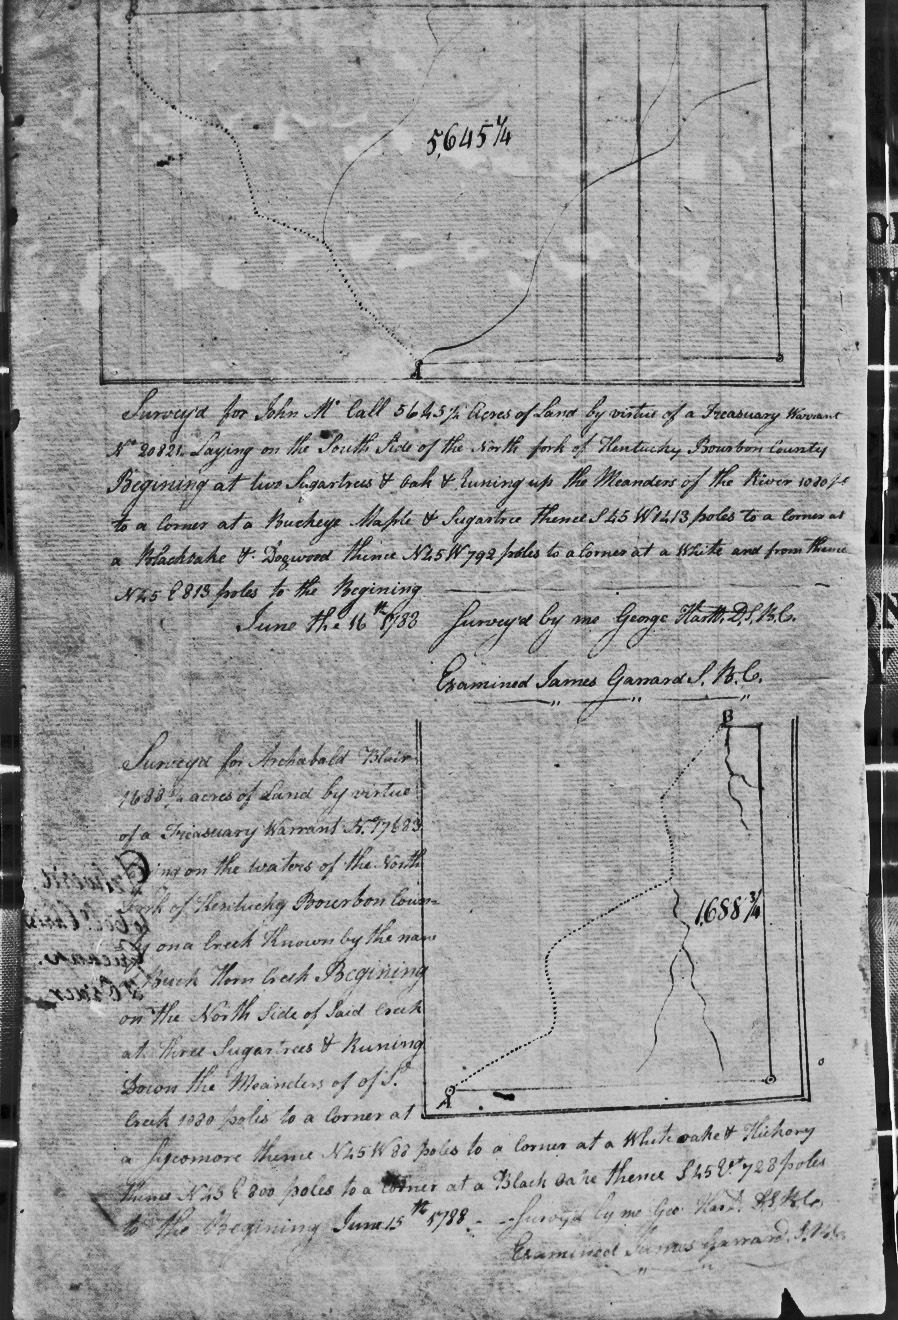 B
5,645 1/4
A
Survey'd for John Mc Call 5645 1/4 Acres of Land by virtue of a Treasuary Warrant
No 20821. Laying on the South Side of the North fork of Kentucky Bourbon County
Begining at two Sugartrees & oah & Runing up the Meanders of the River 1080 ps
to a Corner at a Buckeye Maple & Sugartree thence S 45 W 1413 poles to a Corner at
a Blackoake & Dogwood thence N45 W 792 poles to a Corner at a White and from thence
N45 E 813 poles to the Begining
June the 16th 1788
Survey'd by me George Hartt. D.S.B.C.
Examined James Garrard S. B. C.
Survey'd for Archabald Blair
1688 3/4 acres of Land by virtue
of a Treasuary Warrant No. 17683
ing on the waters of the North
Fork of Kentucky Bourbon Coun=
ty on a Creek Known by the name
Buck Horn Creek Begining
on the North Side of Said Creek
at three Sugartrees & Runing
Down the Meanders of of Sd.
Creek 1080 poles to a Corner at
a Sycomore thence N45 W 88 poles to a Corner at a White oake & Hickory
thence N45 E 800 poles to a Corner at a Black oake thence S 45 Et 728 poles
to the Begining June 15th 1788 - - Survey'd by me Geo. Hart. D.S.B.C.
Examined James Garrard. S. B. C.
B
1,688 3/4
A